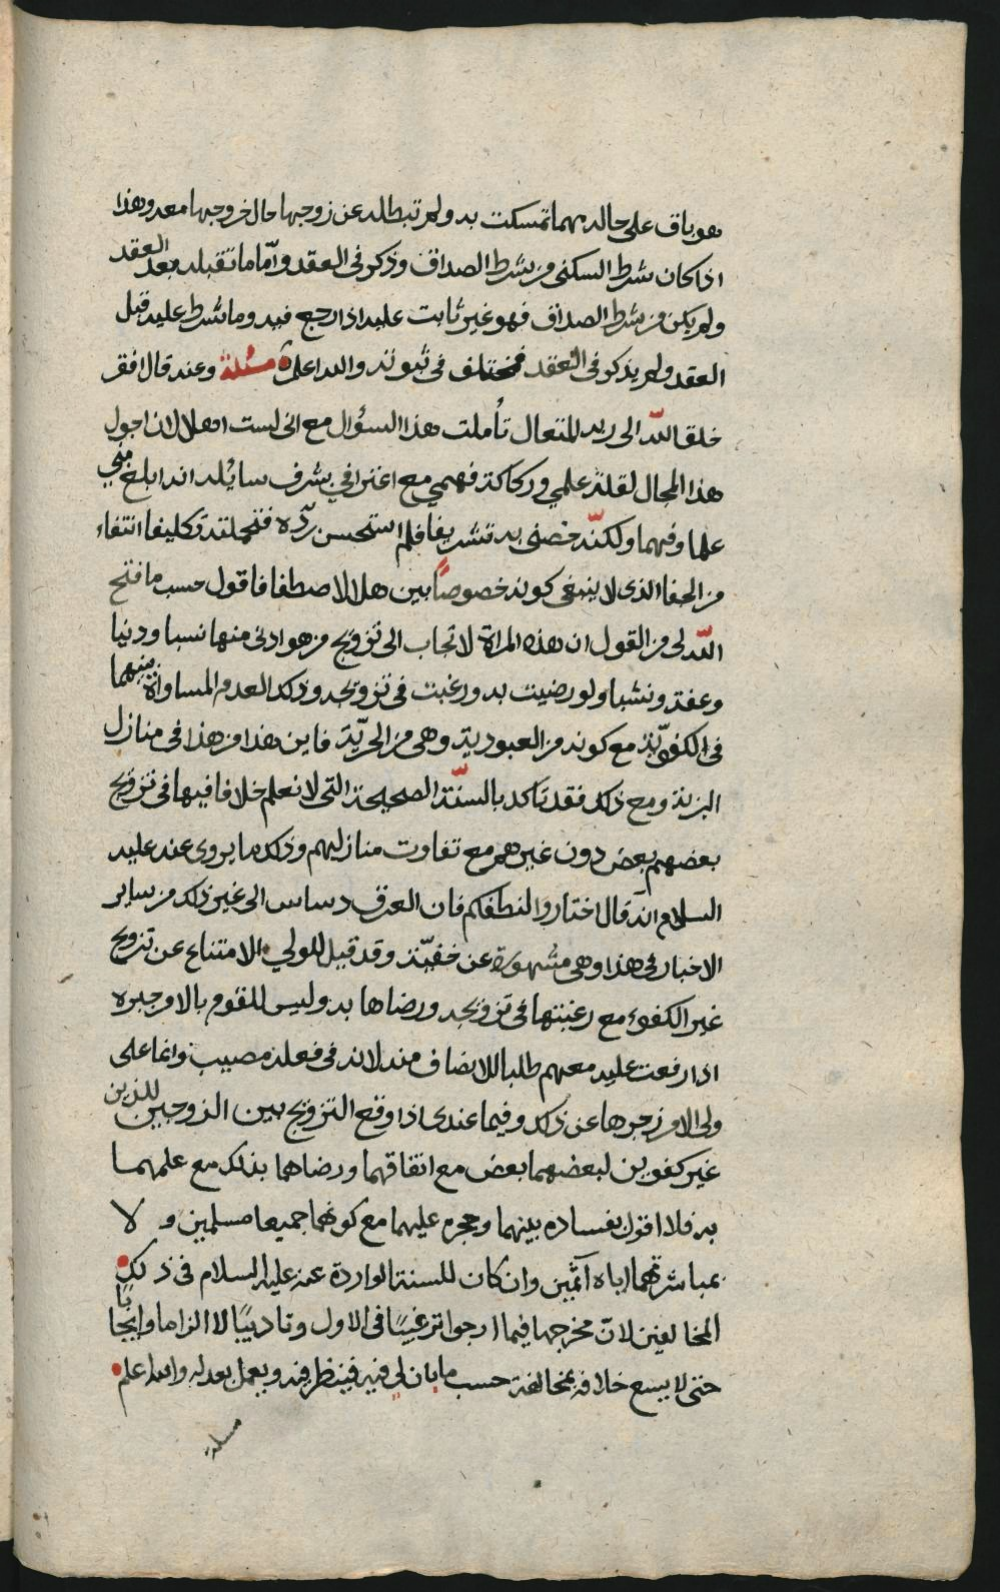 هو باق على حاله مهما تمسكت به ولم تبطله عن زوجها حال خروجها معه وهذا
اذا كان شرط السكنى من شرط الصداق وذكر في العقد واما ما تقبله بعد العقد
ولم يكن من شرط الصداق فهو غير ثابت عليه اذا رجع فيه وما شرط عليه قبل
العقد ولم يذكر في العقد فمختلف في ثبوته والله اعلم مسئلة وعنه قال افقر
خلق الله الى ربه المتعال تأملت هذا السؤال مع اني لست اهلا لان اجول
هذا المجال لقلة علمي وركاكة فهمي مع اعترافي بشرف سايله انه ابلغ مني
علما وفهما ولكنّه خصني به تشريفا فلم استحسن ردّه فتحملته تكليفا انتفاء
من الجفا الذى لا ينبغي كونه خصوصاً بين هل الاصطفا فاقول حسب ما فتح
اللّه لي من القول ان هذه المراة لا تجاب الى تزويج من هو ادنى منها نسبا ودنيا
وعفة ونشبا ولو رضيت به ورغبت في تزويجه وذلك لعدم المساواة بينهما
في الكفويّة مع كونه من العبودية وهي من الحريّة فاين هذا من هذا في منازل
البرية ومع ذلك فقد تاكد بالسنّة الصحيحة التي لا نعلم خلافا فيها في تزويج
بعضهم بعض دون غيرهم مع تفاوت منازلهم وذلك ما يروى عنه عليه
السلام انه قال اختاروا لنطفكم فان العرق دساس الى غير ذلك من ساير
الاخبار في هذا وهي مشهورة عن خفيّة وقد قيل للولي الامتناع عن تزويج
غير الكفوء مع رغبتها في تزويجه ورضاها به وليس للقوم بالامر جبره
اذا رفعت عليه معهم طلبا للانصاف منه لانه في فعله مصيب وانما على
ولي الامر زجرها عن ذلك وفيما عندى اذا وقع التزويج بين الزوجين للذين
غير كفوين لبعضهما بعض مع اتفاقهما ورضاهما بذلك مع علمهما
به فلا اقول بفساده بينهما وحجره عليهما مع كونهما جميعا مسلمين ولا
بمباشرتهما اياه آثمين وان كان للسنة الواردة عنه عليه السلام في ذلك
المخالفين لان مخرجها فيما ارجوا ترغيبًا في الاول وتاديبًا لا الزاما وايجابًا
حتى لا يسع خلافه بمخالفة حسب ما بان لي فيه فينظر فيه ويعمل بعدله والله اعلم
مسئلة